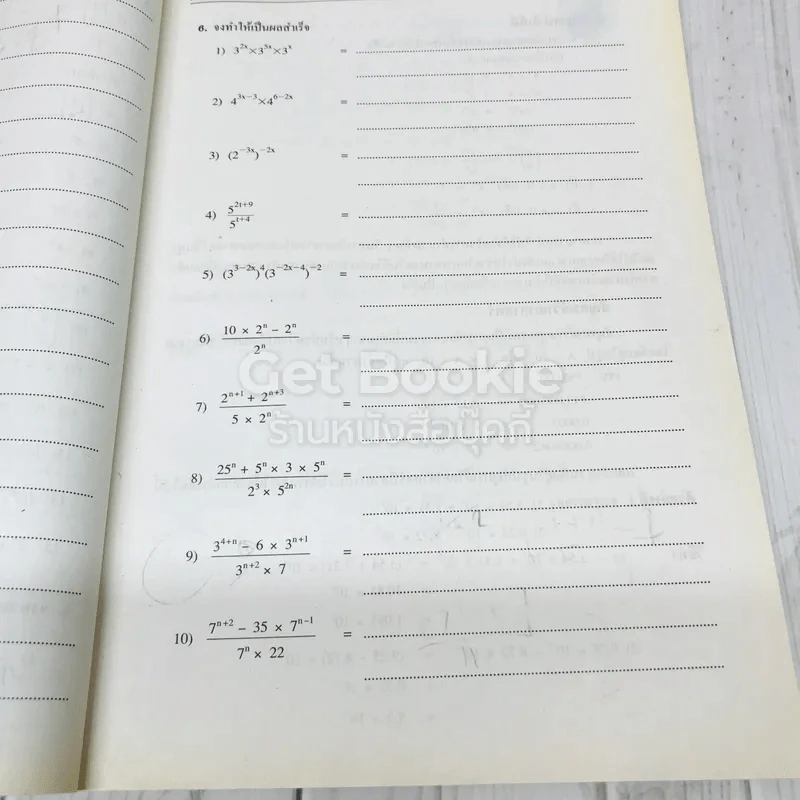 6. จงทำให้เป็นผลสำเร็จ
1) 3^{2x}×3^{5x}×3^{x} =
2) 4^{3x−3}×4^{6−2x} =
3) (2^{−3x})^{−2x} =
4) \frac{5^{2t+9}}{5^{t+4}} =
5) (3^{3−2x})^{4}(3^{−2x−4})^{−2} =
6) \frac{10 × 2^{n} − 2^{n}}{2^{n}} =
Get Bookie
7) \frac{2^{n+1} + 2^{n+3}}{5 × 2^{n}} =
ร้านหนังสือบุ๊คกี้
8) \frac{25^{n} + 5^{n} × 3 × 5^{n}}{2^{3} × 5^{2n}} =
9) \frac{3^{4+n} − 6 × 3^{n+1}}{3^{n+2} × 7} =
10) \frac{7^{n+2} − 35 × 7^{n−1}}{7^{n} × 22} =